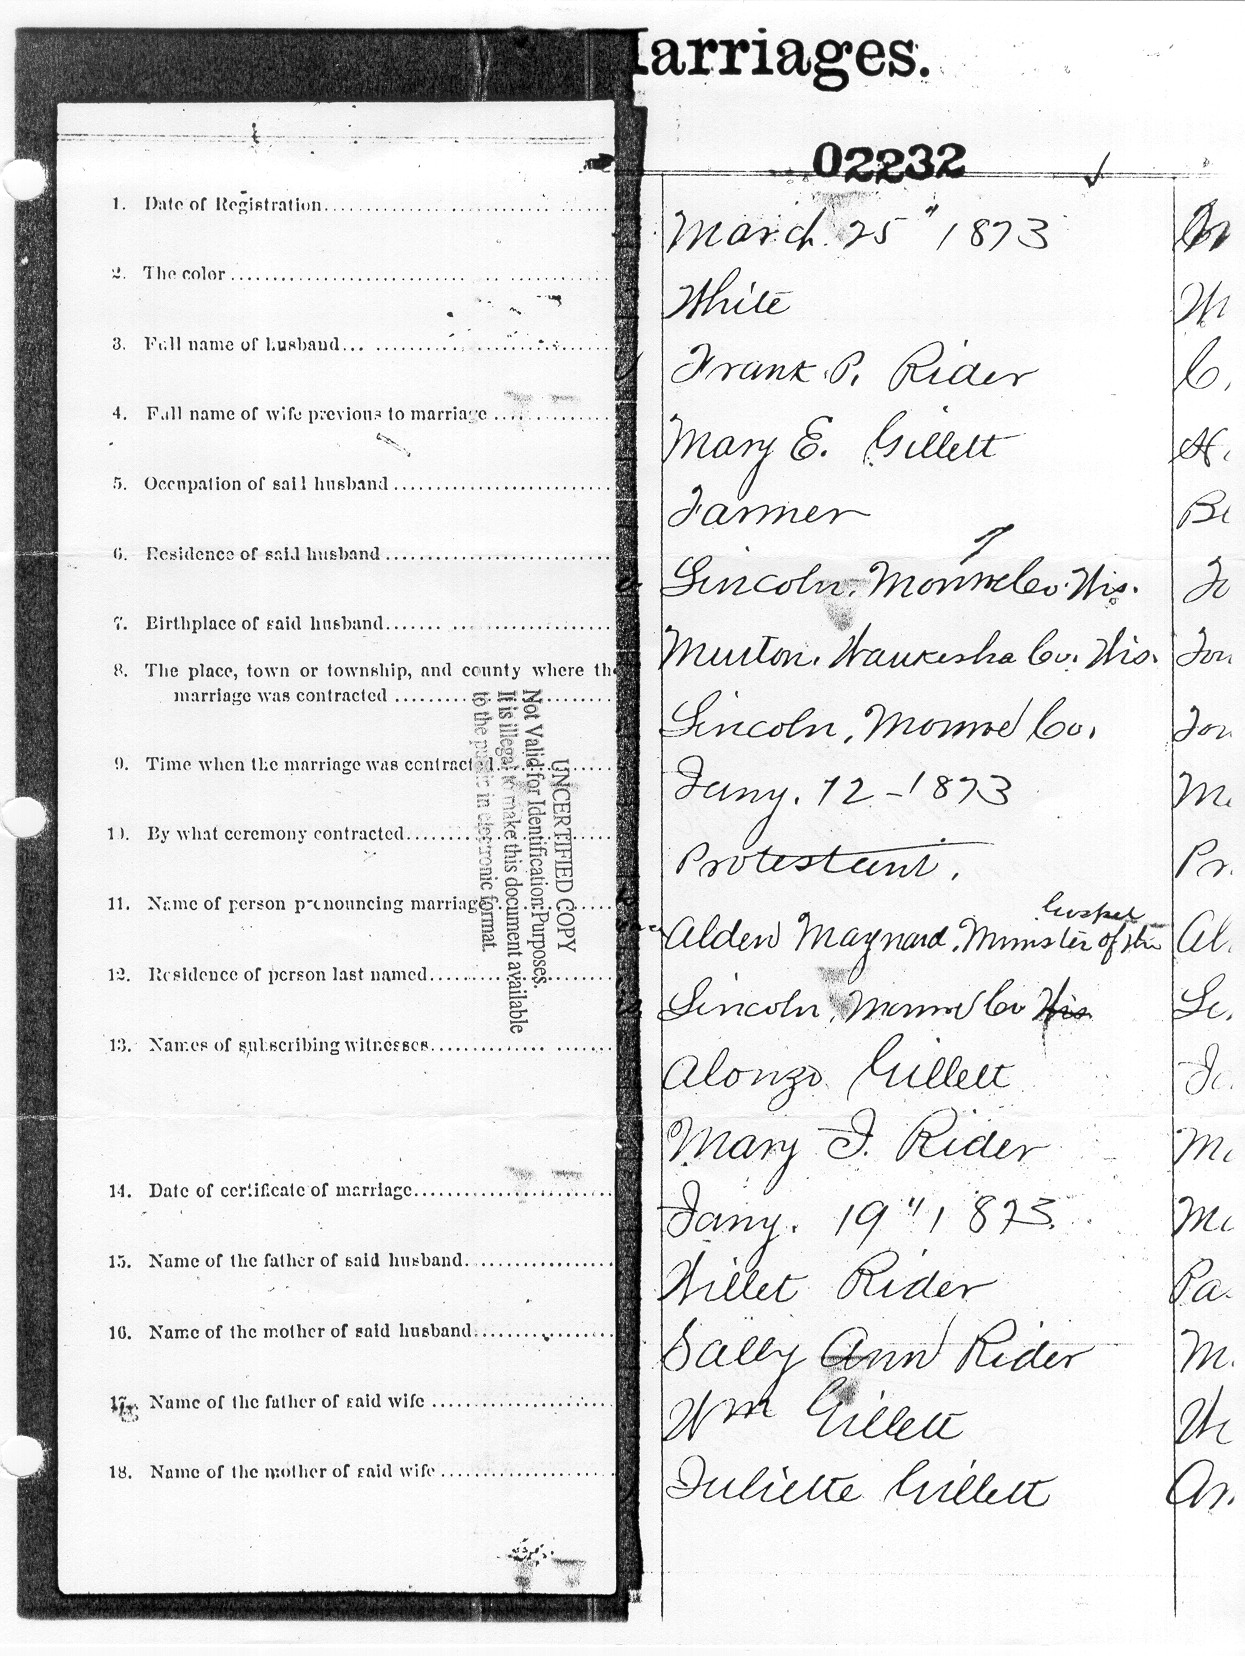 Marriages.
02232
1. Date of Registration
March 25" 1873
2. The color
White
3. Full name of husband
Frank P. Rider
4. Full name of wife previous to marriage
Mary E. Gillett
5. Occupation of said husband
Farmer
6. Residence of said husband
Lincoln, Monroe Co. Wis.
7. Birthplace of said husband
Merton, Waukesha Co. Wis.
8. The place, town or township, and county where the
marriage was contracted
Lincoln, Monroe Co.
9. Time when the marriage was contracted
Jany. 12 - 1873
10. By what ceremony contracted
Protestant.
11. Name of person pronouncing marriage
Alden Maynard, Minister of the Gospel
12. Residence of person last named
Lincoln, Monroe Co Wis
13. Names of subscribing witnesses
Alonzo Gillett
Mary J. Rider
14. Date of certificate of marriage
Jany. 19" 1873.
15. Name of the father of said husband
Willet Rider
16. Name of the mother of said husband
Sally Ann Rider
17. Name of the father of said wife
Wm Gillett
18. Name of the mother of said wife
Juliette Gillett
UNCERTIFIED COPY
Not Valid for Identification Purposes.
It is illegal to make this document available
to the public in electronic format.